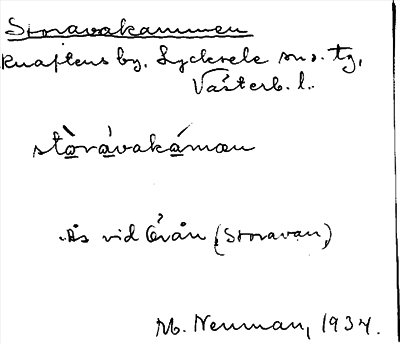 Storavakammen
Knaftens by, Lycksele sn o. tg,
Västerb. l.
stòrávakámən
Ås vid Örån (Storavan)
M. Neuman, 1934.